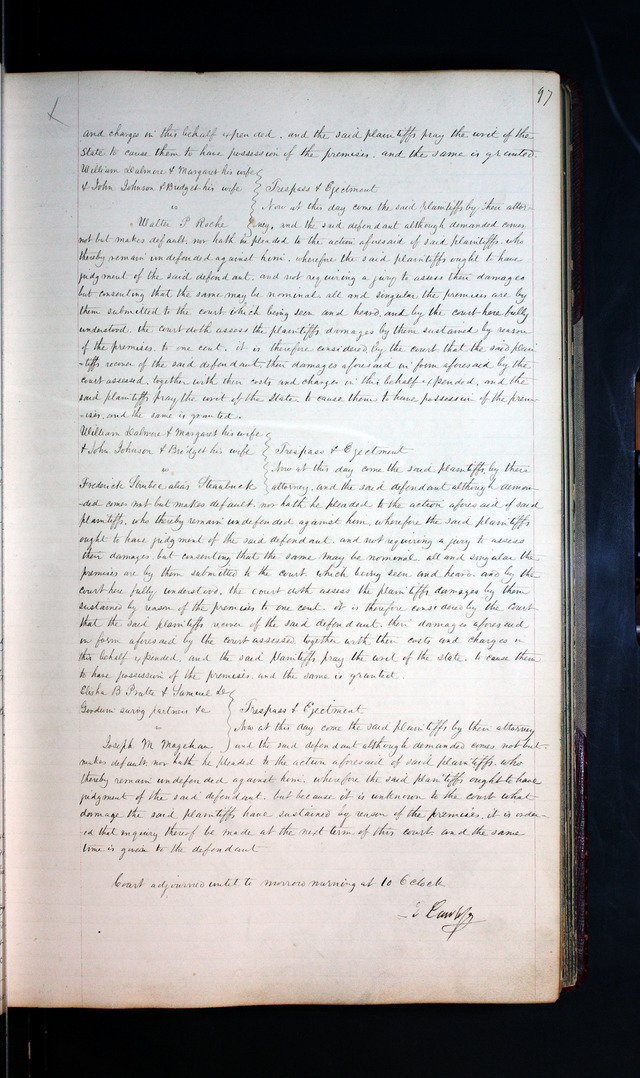 97
and charges in this behalf expended. and the said plaintiffs pray the writ of the
State to cause them to have possession of the premises. and the same is granted.
William Dalmore & Margaret his wife
& John Johnson & Bridget his wife Trespass & Ejectment
vs Now at this day come the said plaintiffs by their attor-
Walter P Roche ney, and the said defendant although demanded comes
not but makes default. nor hath he pleaded to the action aforesaid of said plaintiffs. who
thereby remain undefended against him. wherefore the said plaintiffs ought to have
judgment of the said defendant. and not requiring a jury to assess their damages
but consenting that the same may be nominal. all and singular the premises are by
them submitted to the court. which being seen and heard. and by the court here fully
understood. the court doth assess the plaintiffs damages by them sustained by reason
of the premises to one cent. it is therefore considered by the court. that the said plain
-tiffs recover of the said defendant. their damages aforesaid in form aforesaid by the
court assessed. together with their costs and charges in this behalf expended, and the
said plaintiffs pray the writ of the State. to cause them to have possession of the prem-
-ises. and the same is granted.
William Dalmore & Margaret his wife
& John Johnson & Bridget his wife Trespass & Ejectment
vs Now at this day come the said plaintiffs by their
Frederick Struble alias attorney. and the said defendant although deman-
-ded comes not but makes default. nor hath he pleaded to the action aforesaid of said
plaintiffs. who thereby remain undefended against him. wherefore the said plaintiffs
ought to have judgment of the said defendant. and not requiring a jury to assess
their damages. but consenting that the same may be nominal all and singular the
premises are by them submitted to the court. which being seen and heard. and by the
court here fully understood. the court doth assess the plaintiffs damages by them
sustained by reason of the premises to one cent. it is therefore considered by the court
that the said plaintiffs recover of the said defendant. their damages aforesaid
in form aforesaid by the court assessed together with their costs and charges in
this behalf expended. and the said plaintiffs pray the writ of the state. to cause them
to have possession of the premises. and the same is granted.
Elisha B Pratte & Samuel De
Goodwin suring partners &c Trespass & Ejectment
vs Now at this day come the said plaintiffs by their attorney
Joseph M Magehan and the said defendant although demanded comes not but
makes default. nor hath he pleaded to the action aforesaid of said plaintiffs. who
thereby remain undefended against him. wherefore the said plaintiffs ought to have
judgment of the said defendant. but because it is unknown to the court what
damage the said plaintiffs have sustained by reason of the premises. it is order-
-ed that enquiry thereof be made at the next term of this court and the same
time is given to the defendant
Court adjourned until to morrow morning at 10 Oclock